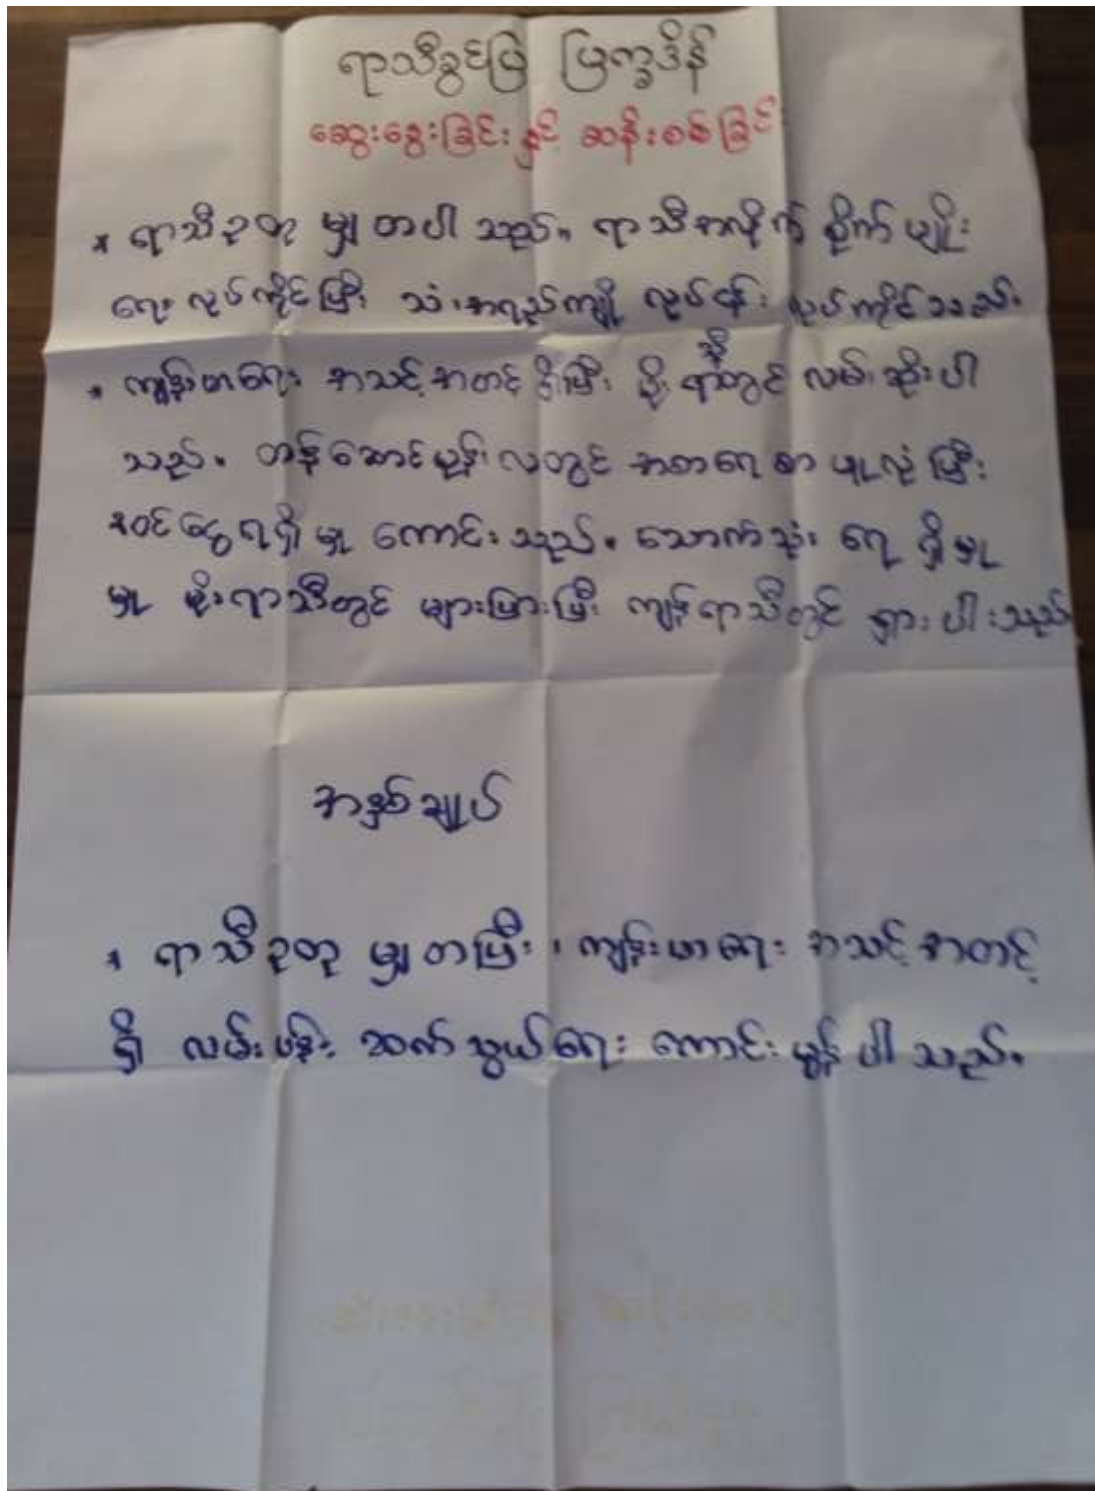 ရာသီခွင်ပြ ပြက္ခဒိန်
ဆွေးနွေးခြင်းနှင့် ဆန်းစစ်ခြင်း
* ရာသီဥတု မျှတပါသည်။ ရာသီအလိုက် စိုက်ပျိုး
ရေး လုပ်ကိုင်ပြီး သီးအရည်ကျို လုပ်ငန်း လုပ်ကိုင်သည်။
* ကျန်းမာရေး အသင့်အတင့် ရှိပြီး မိုးရာသီတွင် လမ်းဆိုးပါ
သည်။ တန်ဆောင်မုန်းလတွင် အစာရေစာ ဖူလုံပြီး
ဝင်ငွေရရှိမှု ကောင်းသည်။ သောက်သုံးရေ ရှိမှု
မှု မိုးရာသီတွင် များပြားပြီး ကျန်ရာသီတွင် ရှားပါးသည်
အနှစ်ချုပ်
* ရာသီဥတု မျှတပြီး၊ ကျန်းမာရေး အသင့်အတင့်
ရှိ လမ်းပန်း ဆက်သွယ်ရေး ကောင်းမွန်ပါသည်။